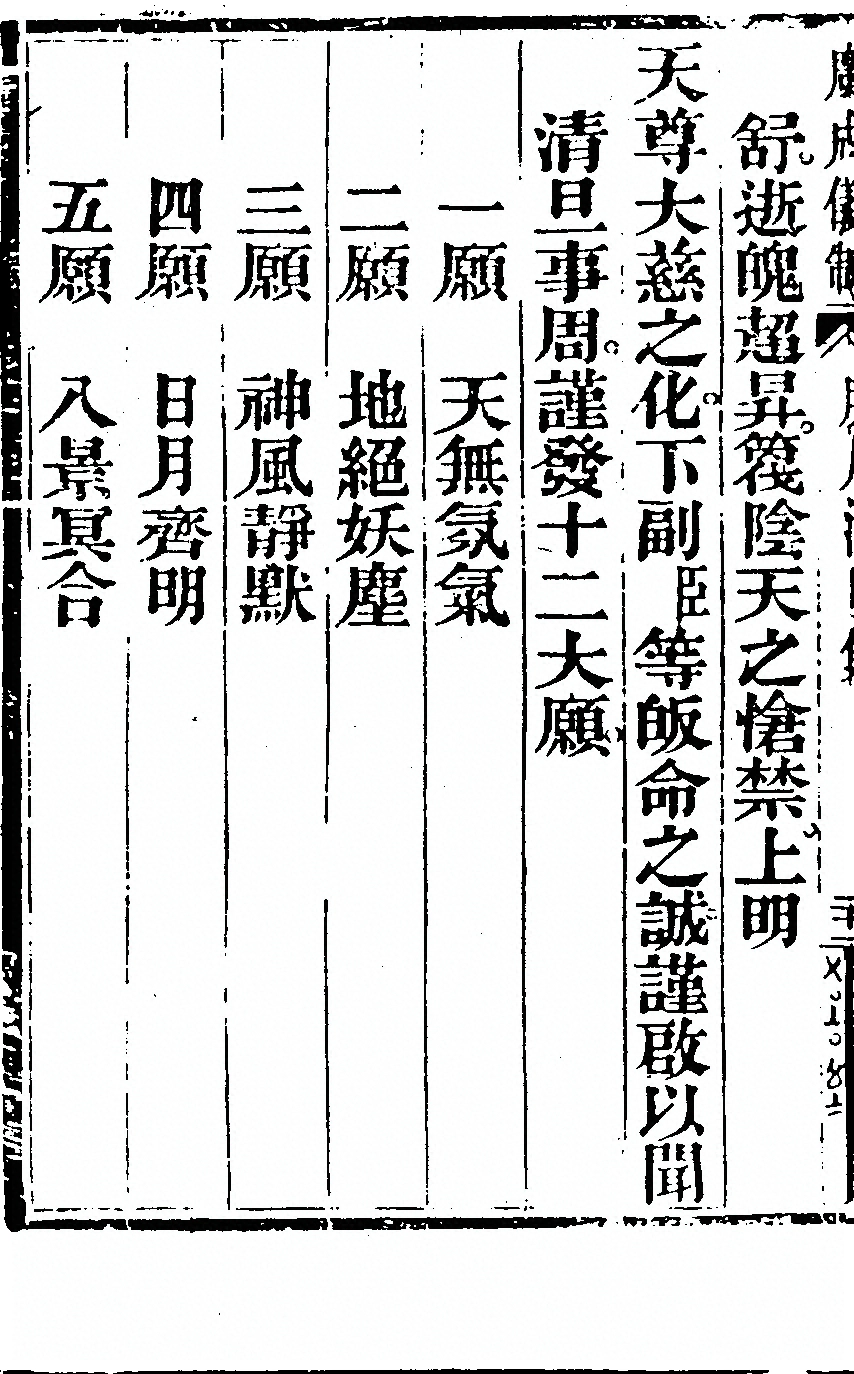 廣成儀制
舒逝魄超昇箯陰天之愴禁上明
天尊大慈之化下副臣等皈命之誠謹啟以聞
清旦事周謹發十二大願
一願　天無氛氣
二願　地絕妖塵
三願　神風靜默
四願　日月齊明
五願　八景冥合